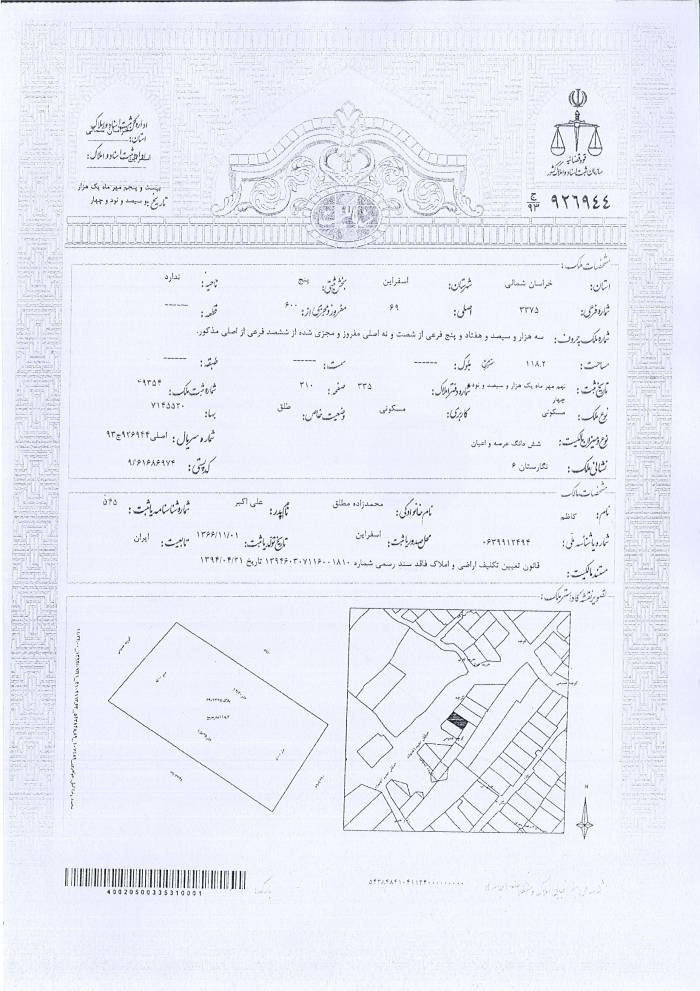 قوه قضائیه
سازمان ثبت اسناد و املاک کشور
۹۲۶۹۴۴ ج ۹۳
اداره کل ثبت اسناد و املاک
استان:
اداره ثبت اسناد و املاک:
بیست و پنجم مهر ماه یک هزار
تاریخ: و سیصد و نود و چهار
مشخصات ملک:
استان: خراسان شمالی شهرستان: اسفراین بخش ثبتی: پنج ناحیه: ندارد
شماره فرعی: ۳۳۷۵ اصلی: ۶۹ مفروز و مجزی از: ۶۰۰ قطعه: ------
شماره ملک بحروف: سه هزار و سیصد و هفتاد و پنج فرعی از شصت و نه اصلی مفروز و مجزی شده از ششصد فرعی از اصلی مذکور.
مساحت: ۱۱۸.۲ مترمربع بلوک: ------ سمت: ------ طبقه: ------
تاریخ ثبت: نهم مهر ماه یک هزار و سیصد و نود و چهار شماره دفتر املاک: ۳۳۵ صفحه: ۳۱۰ شماره ثبت ملک: ۴۹۳۵۴
نوع ملک: مسکونی کاربری: مسکونی وضعیت خاص: طلق بهاء: ۷۱۴۵۵۲۰
نوع و میزان مالکیت: شش دانگ عرصه و اعیان شماره سریال: اصلی۹۲۶۹۴۴ج۹۳
نشانی ملک: نگارستان ۶ کد پستی: ۹/۶۱۶۸۶۹۷۴
مشخصات مالک:
نام: کاظم نام خانوادگی: محمدزاده مطلق نام پدر: علی اکبر شماره شناسنامه یا ثبت: ۵۴۵
شماره یا شناسه ملی: ۰۶۳۹۹۱۲۴۹۴ محل صدور یا ثبت: اسفراین تاریخ تولد یا ثبت: ۱۳۶۶/۱۱/۰۱ تابعیت: ایران
مستند مالکیت: قانون تعیین تکلیف اراضی و املاک فاقد سند رسمی شماره ۱۳۹۴۶۰۳۰۷۱۱۶۰۰۱۸۱۰ تاریخ ۱۳۹۴/۰۴/۳۱
تصویر نقشه کاداستر ملک:
N
400205003353100​01
بارکد: